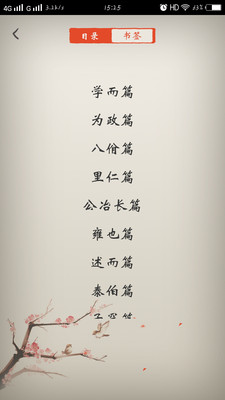 4G G 3.2k/s 15:15 HD 33%
目录 书签
学而篇
为政篇
八佾篇
里仁篇
公冶长篇
雍也篇
述而篇
泰伯篇